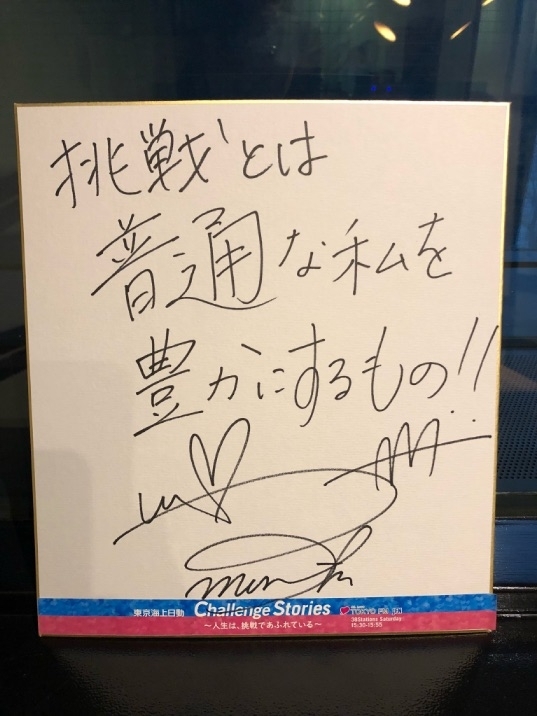 挑戦とは
普通な私を
豊かにするもの!!
東京海上日動 Challenge Stories TOKYO FM
38Stations Saturday
15:30-15:55
〜人生は、挑戦であふれている〜